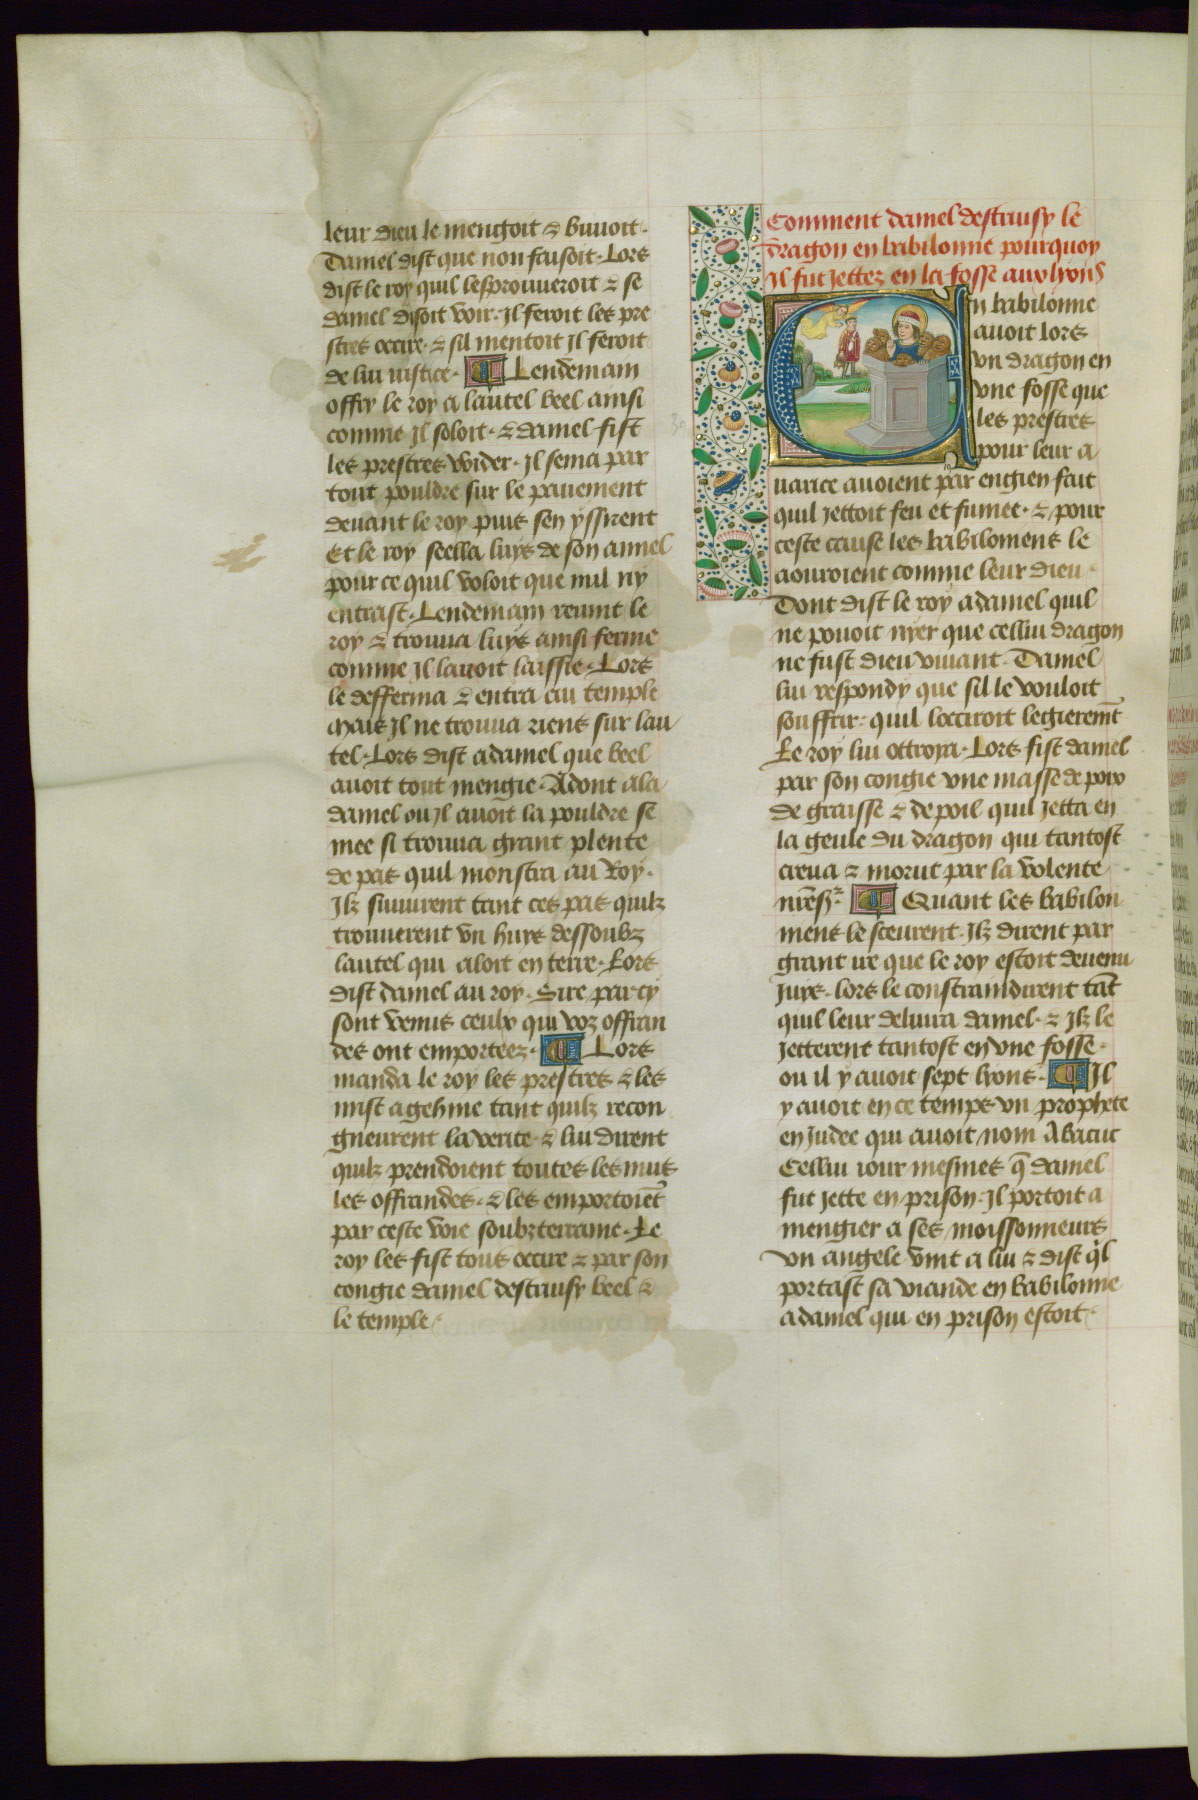 leur dieu le mengoit & buuoit.
Daniel dist que non faisoit. Lors
dist le roy quil lesprouueroit & se
daniel disoit voir. Il feroit les pre
stres occire. & sil mentoit Il feroit
de lui iustice. Lendemain
offry le roy a lautel beel ainsi
comme Il soloit. & daniel fist
les prestres wider. Il sema par
tout pouldre sur le pauement
deuant le roy puis sen yssirent
Et le roy seella luys de son annel
pour ce quil voloit que nul ny
entrast. Lendemain reuint le
roy & trouua luys ainsi ferme
comme Il lauoit laissie. Lors
le defferma & entra au temple
Mais Il ne trouua riens sur lau
tel. Lors dist a daniel que beel
auoit tout mengie. Adont ala
daniel ou Il auoit la pouldre se
mee si trouua grant plente
de pas quil monstra au Roy.
Ilz siuuirent tant ces pas quilz
trouuerent vn huys dessoubz
lautel qui aloit en terre. Lors
dist daniel au roy. Sire par cy
sont venus ceulx qui voz offran
des ont emportees. Lors
manda le roy les prestres & les
mist a gehine tant quilz recon
gneurent la verite & lui dirent
quilz prendoient toutes les nuis
les offrandes. & les emportoiẽt
par ceste voie soubzterraine. Le
roy les fist tous occire & par son
congie daniel destruisy beel &
le temple.
Comment daniel destruisy le
dragon en babilonne pourquoy
Il fut Jettez en la fosse aux lyons
En babilonne
auoit lors
vn dragon en
vne fosse que
les prestres
pour leur a
uarice auoient par engien fait
quil Jettoit feu et fumee. & pour
ceste cause les babiloniens le
aouroient comme leur dieu.
Dont dist le roy a daniel quil
ne pouoit nyer que cellui dragon
ne fust dieu viuant. Daniel
lui respondy que sil le vouloit
souffrir. quil locciroit legieremẽt
Le roy lui ottroya. Lors fist daniel
par son congie vne masse de poix
de graisse & de poil quil Jetta en
la geule du dragon qui tantost
creua & morut par la volente
nr̃es.ʳ Quant les babilon
niens le sceurent. Ilz dirent par
grant ire que le roy estoit deuenu
Juys. lors le constraindirent tãt
quil leur deliura daniel. & Ilz le
Jetterent tantost en vne fosse.
ou il y auoit sept lyons. Il
y auoit en ce temps vn prophete
en Judee qui auoit nom Abacuc
Cellui iour mesmes q̃ daniel
fut Jette en prison. Il portoit a
mengier a ses moissonneurs
vn angele vint a lui & dist q̃l
portast sa viande en babilonne
a daniel qui en prison estoit.